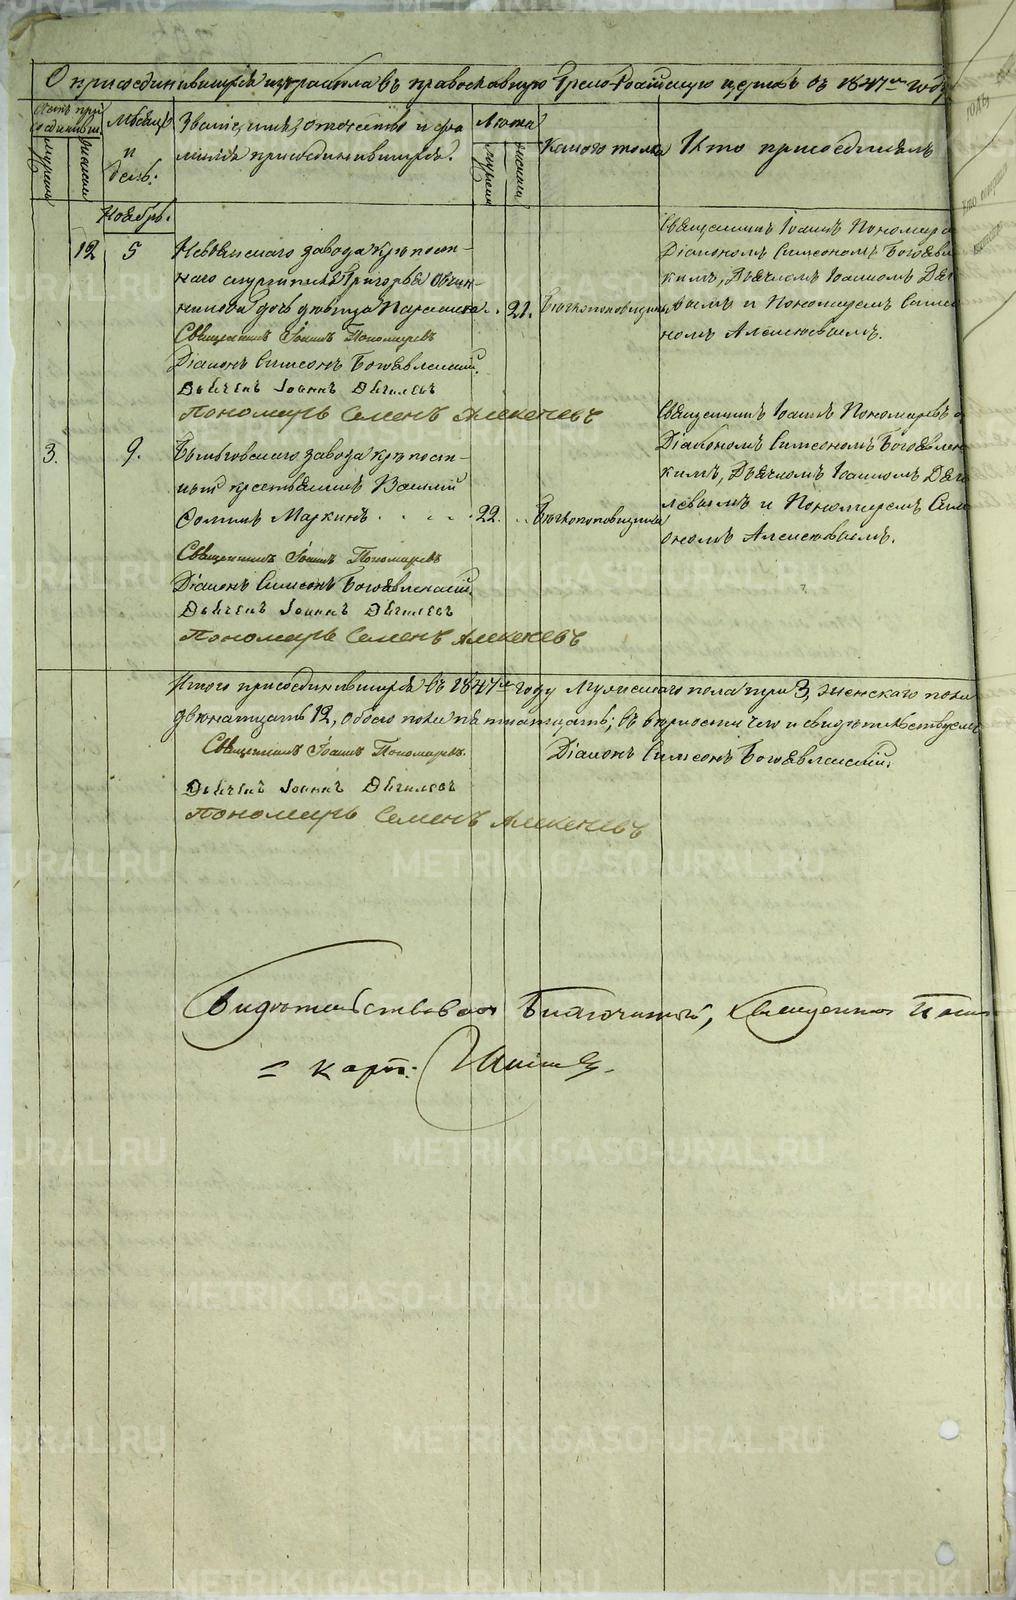 О присоединившихся из раскола въ православную Греко-Россійскую церковь въ 1847м году
Счетъ присоединившихся
мужеска
женска
Мѣсяцъ и день:
Званіе, имя, отечество и фамилія присоединившихся.
Лѣта
мужеска
женска
Какого толка
Кто присоединялъ
Ноябрь.
12
5
Невьянскаго завода крѣпост-
наго Григорья
дочь дѣвица Параскева . .
21.
Священникъ Іоаннъ Пономаревъ
Діаконъ Симеонъ Богоявленскій.
Дьячекъ Іоаннъ Дягилевъ
Пономарь Семенъ Алексеевъ
Священникъ Іоаннъ Пономаре
Діакономъ Симеономъ Богоявлен
кимъ, Дьячкомъ Іоанномъ Дяги
левымъ и Пономаремъ Симео
номъ Алексѣевымъ.
3.
9.
завода крѣпост-
ный крестьянинъ Василій
Фоминъ Маркинъ . . . .
22. . .
Священникъ Іоаннъ Пономаревъ
Діаконъ Симеонъ Богоявленскій
Дьячекъ Іоаннъ Дягилевъ
Пономарь Семенъ Алексеевъ
Священникъ Іоаннъ Пономаревъ с
Діакономъ Симеономъ Богоявленс
кимъ, Дьячкомъ Іоанномъ Дяги
левымъ и Пономаремъ Симе
ономъ Алексѣевымъ.
Итого присоединившихся въ 1847м году Мужескаго пола три 3, женскаго пола
двѣнатцать 12, обоего пола пятнатцать; въ вѣрности чего и свидѣтельствуемъ
Священникъ Іоаннъ Пономаревъ.
Діаконъ Симеонъ Богоявленскій.
Дьячекъ Іоаннъ Дягилевъ
Пономарь Семенъ Алексеевъ
Свидѣтельствовалъ Благочинный, Священникъ
METRIKI.GASO-URAL.RU